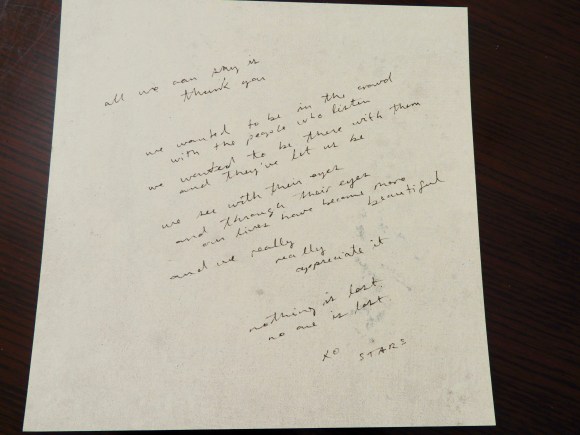 all we can say is
thank you
we wanted to be in the crowd
with the people who listen
we wanted to be there with them
and they've let us be
we see with their eyes
and through their eyes
our lives have become more
beautiful
and we really
really
appreciate it
nothing is lost
no one is lost
xo STARS